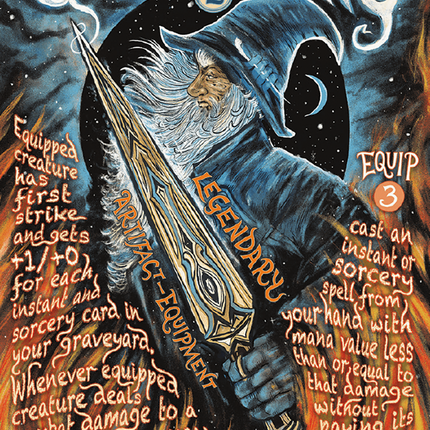 2
Equipped
creature
has
first
strike
and gets
+1/+0
for each
instant and
sorcery card in
your graveyard.
Whenever equipped
creature deals
damage to a
LEGENDARY
ARTIFACT – EQUIPMENT
EQUIP
3
cast an
instant or
sorcery
spell from
your hand with
mana value less
than or equal to
that damage
without
paying its